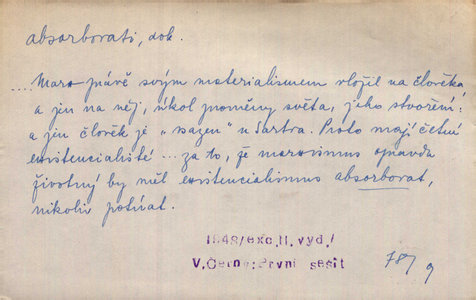 absorborati, dok.
....Marx právě svým materialismem vložil na člověka,
a jen na něj, úkol proměny světa, jeho stvoření:
a jen člověk je „vazen" u Sartra. Proto mají četné
existencialisté ... za to, že marxismus opravdu
životný by měl existencialismus absorborat,
nikoliv potírat.
1948/exc.II.vyd./
V.Černý:První sešit
78/9